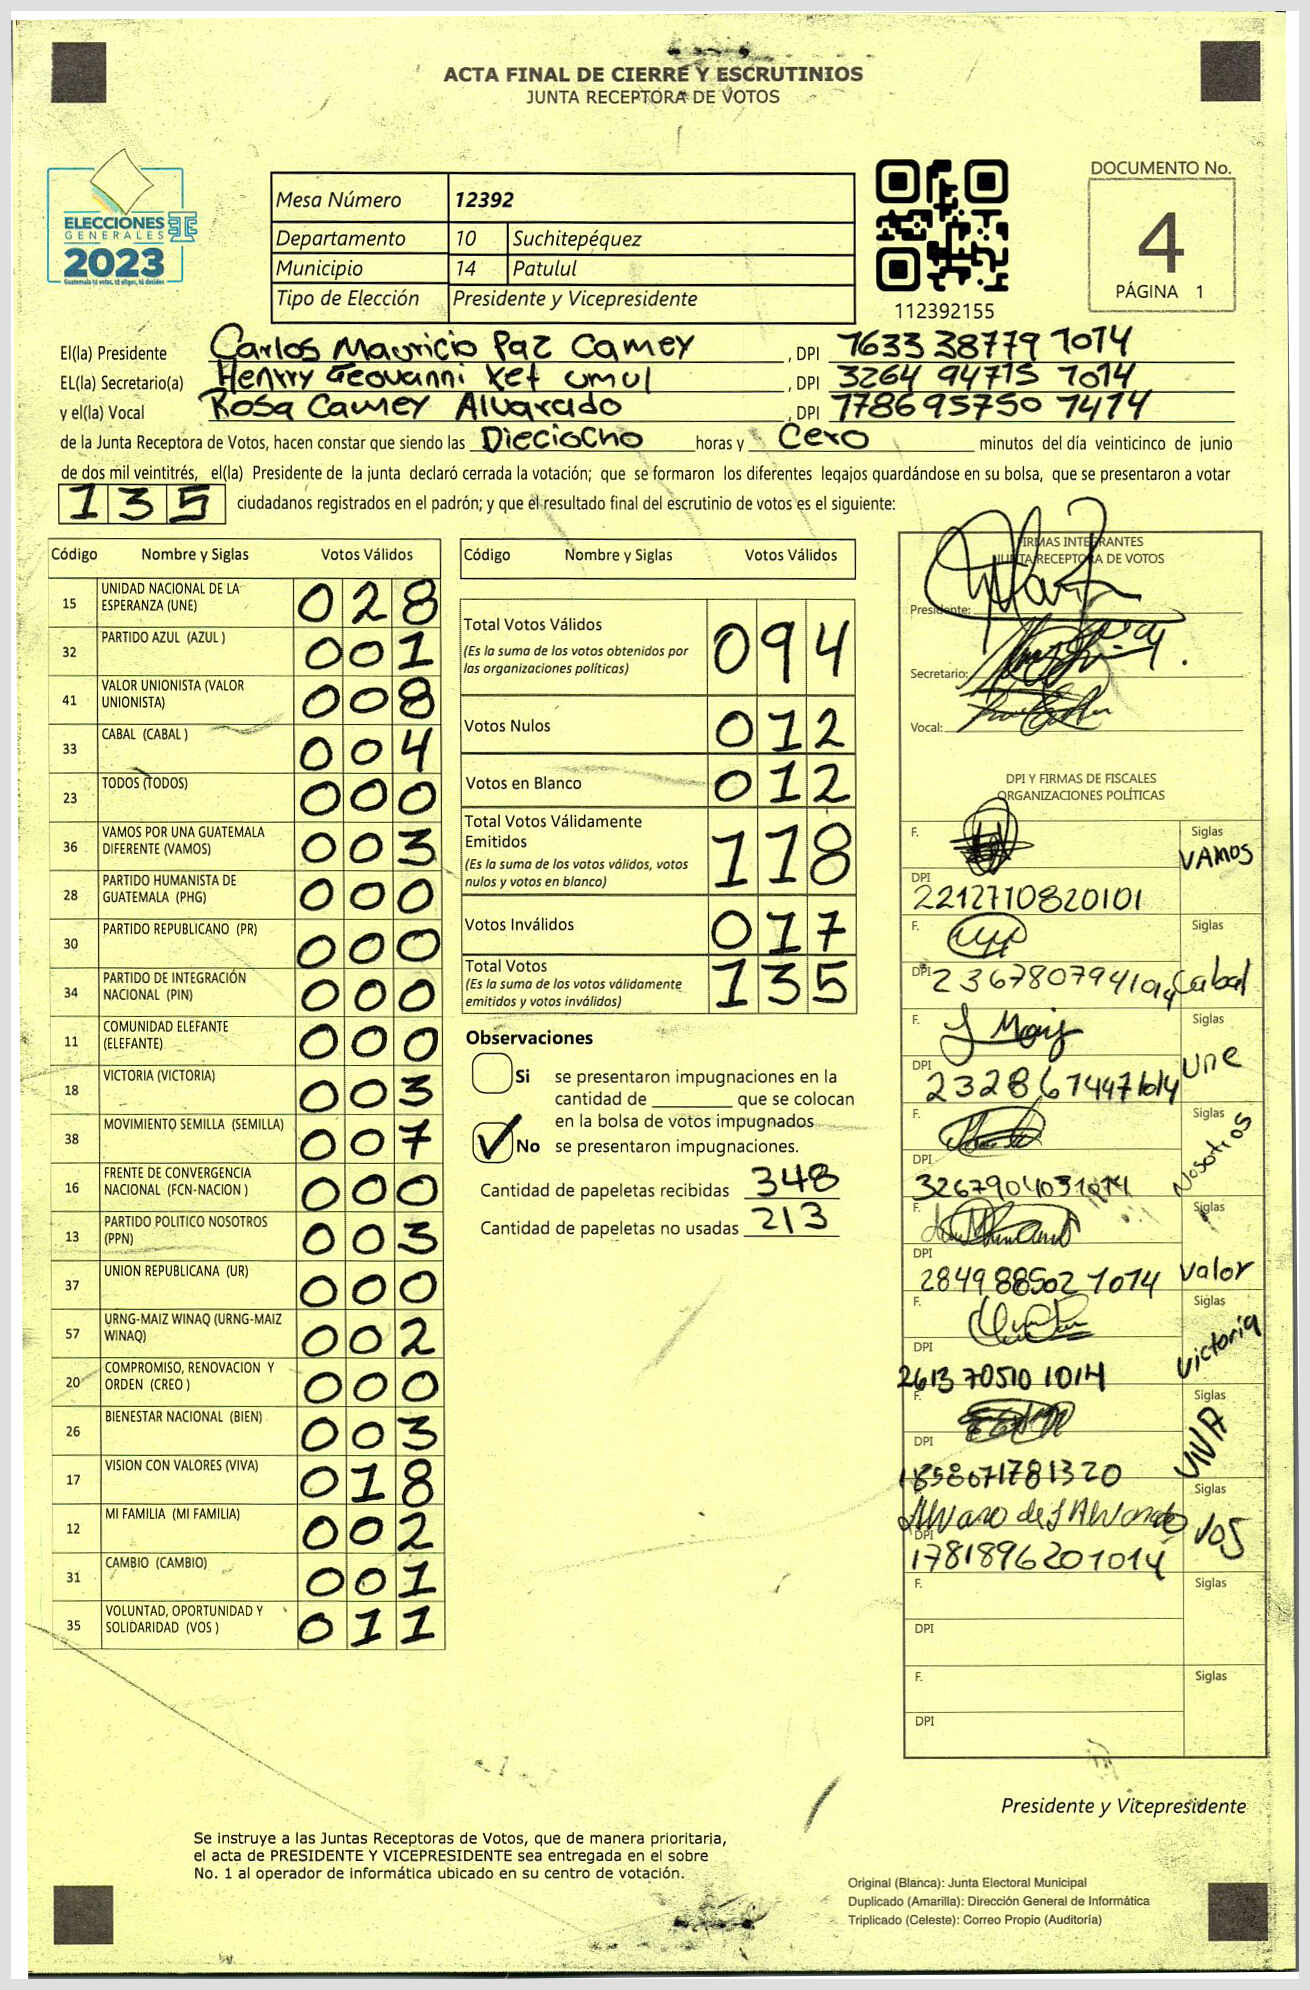 ACTA FINAL DE CIERRE Y ESCRUTINIOS
JUNTA RECEPTORA DE VOTOS
ELECCIONES
GENERALES
2023
Guatemala tú votas, tú eliges, tú decides
Mesa Número 12392
Departamento 10 Suchitepéquez
Municipio 14 Patulul
Tipo de Elección Presidente y Vicepresidente
112392155
DOCUMENTO No.
4
PÁGINA 1
El(la) Presidente Carlos Mauricio Paz Camey , DPI 1633 38779 1014
EL(la) Secretario(a) Henrry Geovanni Xet Umul , DPI 3264 94715 1014
y el(la) Vocal Rosa Camey Alvarado , DPI 1786 95750 1414
de la Junta Receptora de Votos, hacen constar que siendo las Dieciocho horas y Cero minutos del día veinticinco de junio
de dos mil veintitrés, el(la) Presidente de la junta declaró cerrada la votación; que se formaron los diferentes legajos guardándose en su bolsa, que se presentaron a votar
135 ciudadanos registrados en el padrón; y que el resultado final del escrutinio de votos es el siguiente:
Código Nombre y Siglas Votos Válidos
15 UNIDAD NACIONAL DE LA ESPERANZA (UNE) 028
32 PARTIDO AZUL (AZUL ) 001
41 VALOR UNIONISTA (VALOR UNIONISTA) 008
33 CABAL (CABAL ) 004
23 TODOS (TODOS) 000
36 VAMOS POR UNA GUATEMALA DIFERENTE (VAMOS) 003
28 PARTIDO HUMANISTA DE GUATEMALA (PHG) 000
30 PARTIDO REPUBLICANO (PR) 000
34 PARTIDO DE INTEGRACIÓN NACIONAL (PIN) 000
11 COMUNIDAD ELEFANTE (ELEFANTE) 000
18 VICTORIA (VICTORIA) 003
38 MOVIMIENTO SEMILLA (SEMILLA) 007
16 FRENTE DE CONVERGENCIA NACIONAL (FCN-NACION ) 000
13 PARTIDO POLITICO NOSOTROS (PPN) 003
37 UNION REPUBLICANA (UR) 000
57 URNG-MAIZ WINAQ (URNG-MAIZ WINAQ) 002
20 COMPROMISO, RENOVACION Y ORDEN (CREO ) 000
26 BIENESTAR NACIONAL (BIEN) 003
17 VISION CON VALORES (VIVA) 018
12 MI FAMILIA (MI FAMILIA) 002
31 CAMBIO (CAMBIO) 001
35 VOLUNTAD, OPORTUNIDAD Y SOLIDARIDAD (VOS ) 011
Código Nombre y Siglas Votos Válidos
Total Votos Válidos 094
(Es la suma de los votos obtenidos por
las organizaciones políticas)
Votos Nulos 012
Votos en Blanco 012
Total Votos Válidamente
Emitidos 118
(Es la suma de los votos válidos, votos
nulos y votos en blanco)
Votos Inválidos 017
Total Votos 135
(Es la suma de los votos válidamente
emitidos y votos inválidos)
Observaciones
Si se presentaron impugnaciones en la
cantidad de ________ que se colocan
en la bolsa de votos impugnados
No se presentaron impugnaciones.
Cantidad de papeletas recibidas 348
Cantidad de papeletas no usadas 213
FIRMAS INTEGRANTES
JUNTA RECEPTORA DE VOTOS
Presidente:
Secretario:
Vocal:
DPI Y FIRMAS DE FISCALES
ORGANIZACIONES POLÍTICAS
F. Siglas
VAMOS
DPI
2212710820101
F. Siglas
DPI 2367807941014 Cabal
F. Siglas
DPI Une
23286714471014
F. Siglas
DPI Nosotros
3267904031014
F. Siglas
DPI
2849885021014 Valor
F. Siglas
DPI Victoria
2613 70510 1014
Siglas
DPI VIVA
1858071781320
Siglas
DPI VOS
1781896201014
F. Siglas
DPI
F. Siglas
DPI
Presidente y Vicepresidente
Se instruye a las Juntas Receptoras de Votos, que de manera prioritaria,
el acta de PRESIDENTE Y VICEPRESIDENTE sea entregada en el sobre
No. 1 al operador de informática ubicado en su centro de votación.
Original (Blanca): Junta Electoral Municipal
Duplicado (Amarilla): Dirección General de Informática
Triplicado (Celeste): Correo Propio (Auditoría)